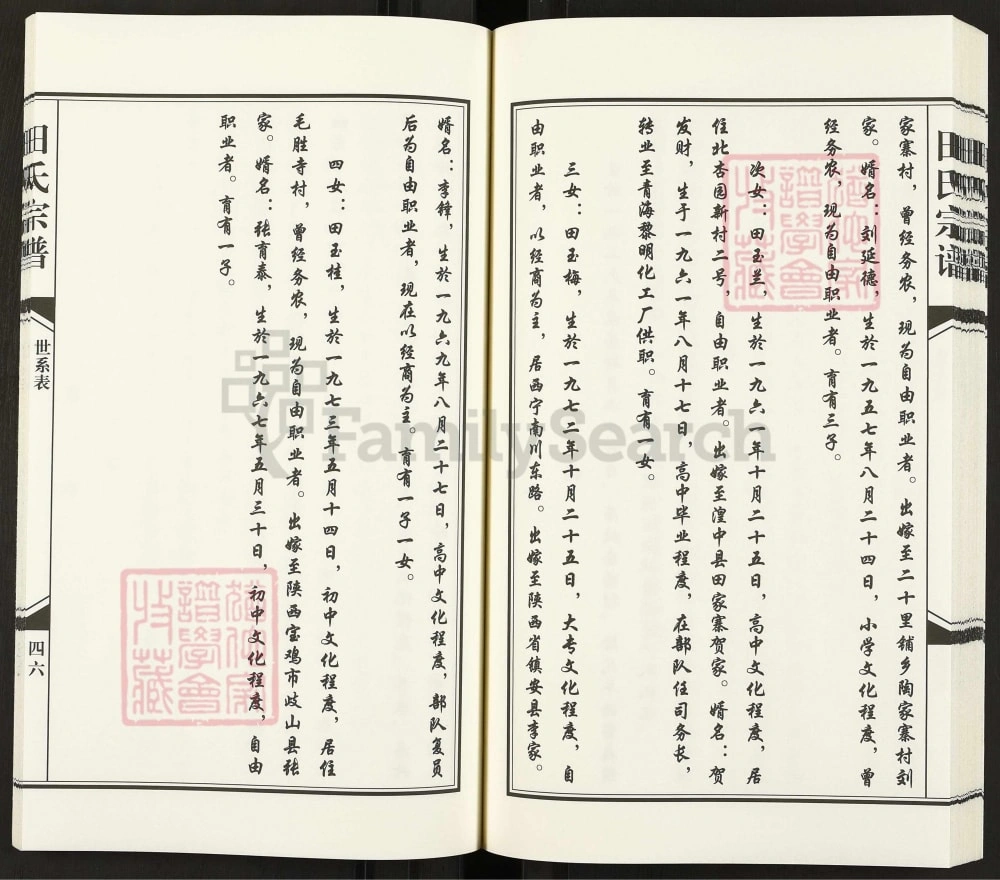 田氏宗谱
家寨村，曾经务农，现为自由职业者。出嫁至二十里铺乡陶家寨村刘
家。婿名：刘延德，生於一九五七年八月二十四日，小学文化程度，曾
经务农，现为自由职业者。育有三子。
次女：田玉兰，生於一九六一年十月二十五日，高中文化程度，居
住北杏园新村二号，自由职业者。出嫁至湟中县田家寨贺家。婿名：贺
发财，生于一九六一年八月十七日，高中毕业程度，在部队任司务长，
转业至青海黎明化工厂供职。育有一女。
三女：田玉梅，生於一九七二年十月二十五日，大专文化程度，自
由职业者，以经商为主，居西宁南川东路。出嫁至陕西省镇安县李家。
婿名：李锋，生於一九六九年八月二十七日，高中文化程度，部队复员
后为自由职业者，现在以经商为主。育有一子一女。
四女：田玉桂，生於一九七三年五月十四日，初中文化程度，居住
毛胜寺村，曾经务农，现为自由职业者。出嫁至陕西宝鸡市岐山县张
家。婿名：张育泰，生於一九六七年五月三十日，初中文化程度，自由
职业者。育有一子。
田氏宗谱
世系表
四六
FamilySearch